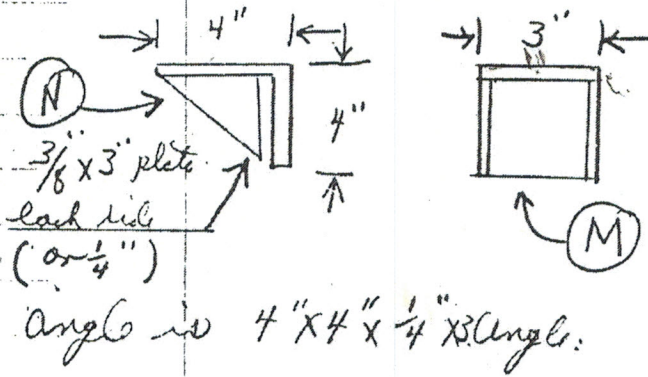 4"
3"
N
4"
3/8" x 3" plate
each side
(or 1/4")
M
Angle is 4" x 4" x 1/4" x 3 angle.